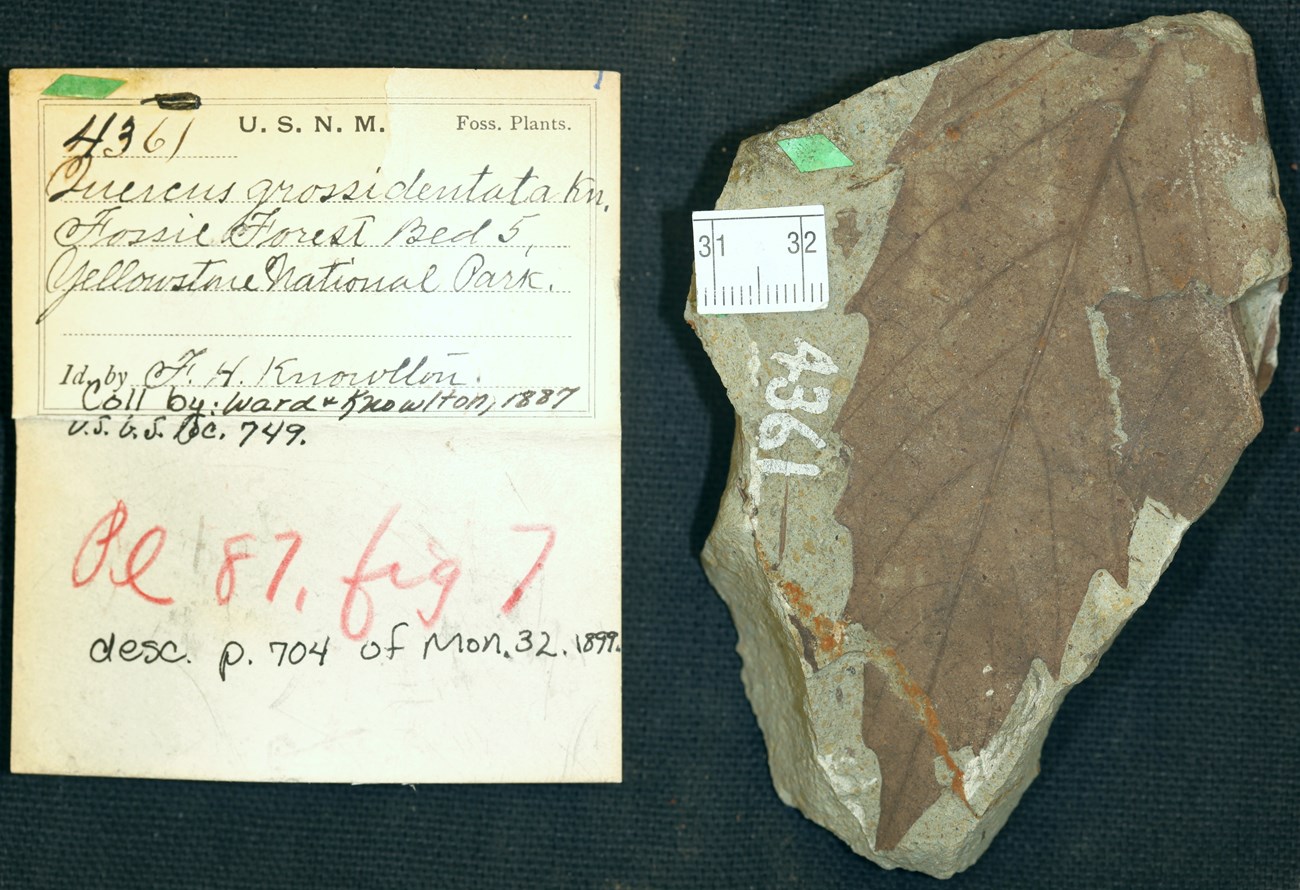 4361 U. S. N. M. Foss. Plants.
Quercus grossidentata Kn.
Fossil Forest Bed 5,
Yellowstone National Park.
Id. by F. H. Knowlton.
Coll by: Ward & Knowlton, 1887
U.S.G.S. Loc. 749.
Pl 87, fig 7
desc. p. 704 of Mon. 32. 1899.
31 32
4361